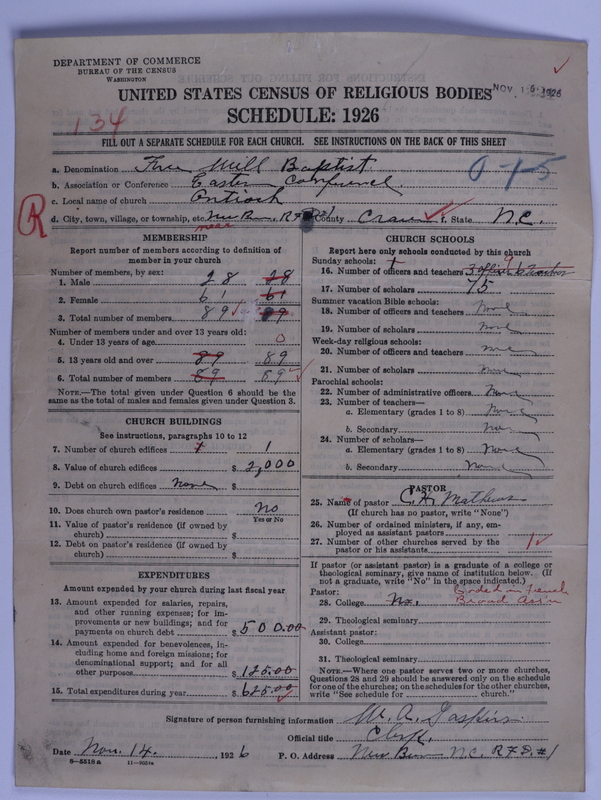 DEPARTMENT OF COMMERCE
BUREAU OF THE CENSUS
WASHINGTON
UNITED STATES CENSUS OF RELIGIOUS BODIES
NOV 15 1926
SCHEDULE: 1926
134
FILL OUT A SEPARATE SCHEDULE FOR EACH CHURCH. SEE INSTRUCTIONS ON THE BACK OF THIS SHEET
a. Denomination Free Will Baptist
0-15
b. Association or Conference Eastern Conference
c. Local name of church Antioch
R
d. City, town, village, or township, etc. New Bern, RFD County Craven f. State N.C.
near
MEMBERSHIP
Report number of members according to definition of
member in your church
Number of members, by sex:
1. Male 28 28
2. Female 61 61
3. Total number of members. 89 89
Number of members under and over 13 years old:
4. Under 13 years of age 0
5. 13 years old and over 89 89
6. Total number of members 89 89
NOTE.—The total given under Question 6 should be the
same as the total of males and females given under Question 3.
CHURCH BUILDINGS
See instructions, paragraphs 10 to 12
7. Number of church edifices 1
8. Value of church edifices $ 2,000
9. Debt on church edifices None $
10. Does church own pastor's residence No
Yes or No
11. Value of pastor's residence (if owned by
church) $
12. Debt on pastor's residence (if owned by
church) $
EXPENDITURES
Amount expended by your church during last fiscal year
13. Amount expended for salaries, repairs,
and other running expenses; for im-
provements or new buildings; and for
payments on church debt $ 500.00
14. Amount expended for benevolences, in-
cluding home and foreign missions; for
denominational support; and for all
other purposes $ 125.00
15. Total expenditures during year $ 625.00
CHURCH SCHOOLS
Report here only schools conducted by this church
Sunday schools: 9
16. Number of officers and teachers 3 officers 6 Teachers
17. Number of scholars 75
Summer vacation Bible schools:
18. Number of officers and teachers None
19. Number of scholars None
Week-day religious schools:
20. Number of officers and teachers None
21. Number of scholars None
Parochial schools:
22. Number of administrative officers None
23. Number of teachers—
a. Elementary (grades 1 to 8) None
b. Secondary None
24. Number of scholars—
a. Elementary (grades 1 to 8) None
b. Secondary None
PASTOR
25. Name of pastor C.H. Mathews
(If church has no pastor, write "None")
26. Number of ordained ministers, if any, em-
ployed as assistant pastors
27. Number of other churches served by the
pastor or his assistants 1
If pastor (or assistant pastor) is a graduate of a college or
theological seminary, give name of institution below. (If
not a graduate, write "No" in the space indicated.)
Pastor: Orded in French
28. College No. Broad Ass'n
29. Theological seminary
Assistant pastor:
30. College
31. Theological seminary
NOTE.—Where one pastor serves two or more churches,
Questions 28 and 29 should be answered only on the schedule
for one of the churches; on the schedules for the other churches,
write "See schedule for church."
Signature of person furnishing information W. A. Gaskins
Official title Clerk.
Date Nov. 14. 1926 P. O. Address New Bern N.C. R F D. #1
8—5518 a 11—9054a